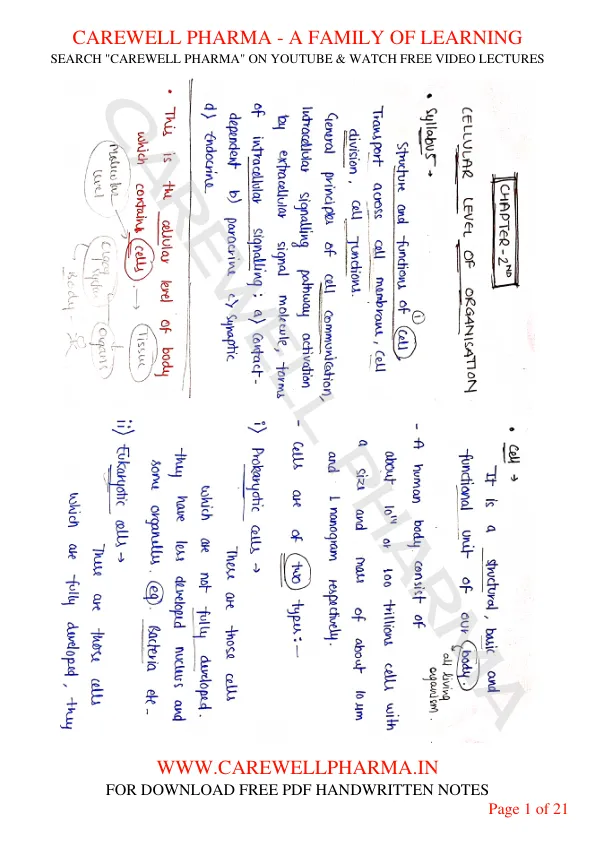 CAREWELL PHARMA - A FAMILY OF LEARNING
SEARCH "CAREWELL PHARMA" ON YOUTUBE & WATCH FREE VIDEO LECTURES
CHAPTER - 2ND
CELLULAR LEVEL OF ORGANISATION
• Syllabus →
Structure and functions of cell, ①
Transport across cell membrane, cell
division, cell junctions.
General principles of cell communication,
Intracellular signalling pathway activation
by extracellular signal molecule, forms
of intracellular signalling; a) contact-
dependent b) paracrine c) synaptic
d) Endocrine
• This is the cellular level of body
which contains cells. → Tissue
Molecular
level
Organs
System
Body
• Cell →
It is a structural, basic and
functional unit of our body.
all living
organism.
- A human body consist of
about 10¹⁴ or 100 trillions cells with
a size and mass of about 10 µm
and 1 nanogram respectively.
- Cells are of two types:-
i) Prokaryotic cells →
There are those cells
which are not fully developed.
they have less developed nucleus and
some organelles. eg. Bacteria etc-
ii) Eukaryotic cells →
There are those cells
which are fully developed, they
CAREWELL PHARMA
WWW.CAREWELLPHARMA.IN
FOR DOWNLOAD FREE PDF HANDWRITTEN NOTES
Page 1 of 21